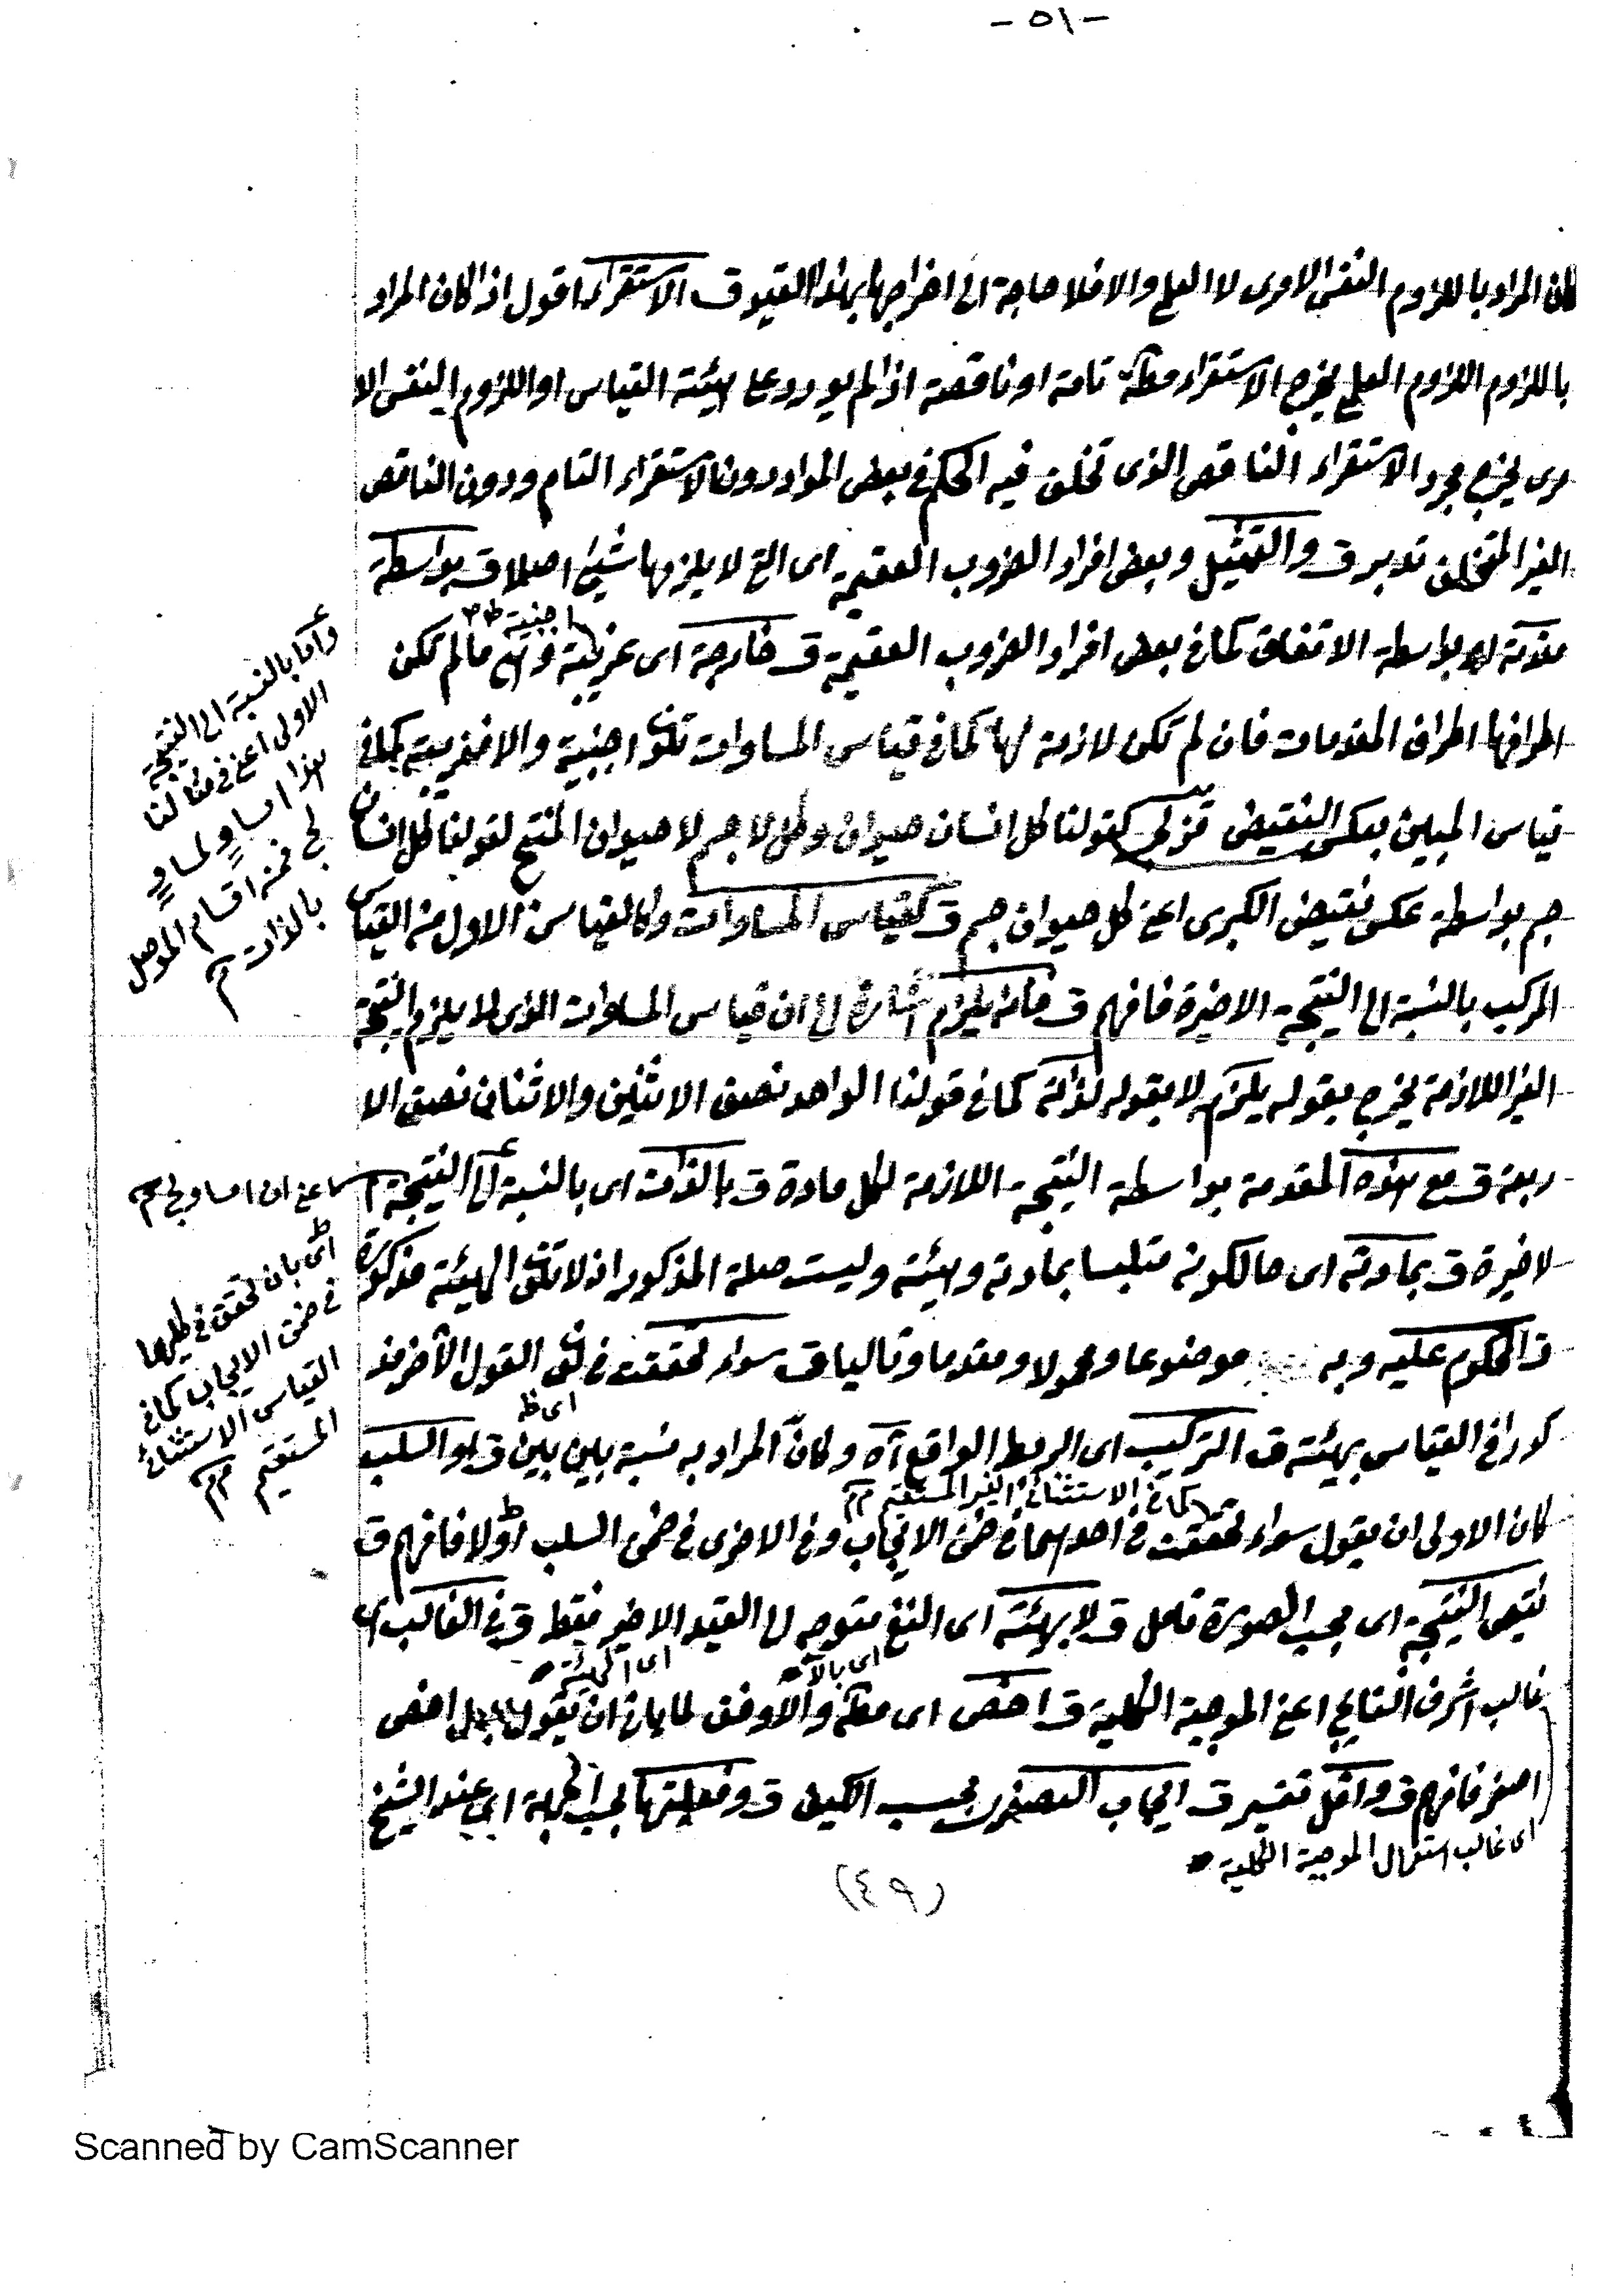 - ٥١ -
كان المراد باللزوم النفس الامرى لا العلمى والا فلا حاجة الى اخراجها بهذا القيد ق الاستقراء اقول اذا كان المراد
باللزوم اللزوم العلمى يخرج الاستقراء مط تامة او ناقصة اذا لم يورد على هيئة القياس او اللزوم النفس الا
مرى يخرج مجرد الاستقراء الناقص الذى تخلف فيه الحكم فى بعض المواد دون الاستقراء التام ودون الناقص
الغير المتخلف تدبر ق والتمثيل وبعض افراد الضروب العقيمة اى التى لا يلزمها شيئ اصلا ق بواسطة
اجنبية
مقدمة لا بواسطة الاتفاق كما فى بعض افراد الضروب العقيمة ق خارجة اى غريبة وهى ما لم تكن
اطرافها اطراف المقدمات فان لم تكن لازمة لها كما فى قياس المساوات تكون اجنبية والا فغريبة كما فى
قياس المبين بعكس النقيض قزلجى كقولنا كل انسان حيوان وكل لا جسم لا حيوان المنتج لقولنا كل انسان
جسم بواسطة عكس نقيض الكبرى اعنى كل حيوان جسم ق كقياس المساوات وكالقياس الاول من القياس
المركب بالنسبة الى النتيجة الاخيرة فافهم ق فانه يلزم اشارة الى ان قياس المساوات الذى لا يلزم النتيجة
الغير اللازمة يخرج بقوله يلزم لا بقوله لذاته كما فى قولنا الواحد نصف الاثنين والاثنان نصف الا
ربعة ق مع هذه المقدمة بواسطة النتيجة اللازمة لكل مادة ق بالذات اى بالنسبة الى النتيجة ا
لاخيرة ق بمادته اى حالكونه متلبسا بمادته وهيئته وليست صلة المذكور اذ لا تكون الهيئة مذكورة
ق المحكوم عليه وبه موضوعا ومحمولا ومقدما وتاليا ق سواء تحققت فى القول الآخر مذ
اى ط
كورا فى القياس بهيئته ق التركيب اى الربط الواقع آه وكأن المراد به نسبة بين بين ق او السلب
كما فى الاستثنائى الغير المستقيم
كان الاولى ان يقول سواء تحققت فى احدهما فى ضمن الايجاب وفى الاخرى فى ضمن السلب اولا فافهم ق
نقيض النتيجة اى بحسب الصورة تأمل ق لا بهيئته اى النفى متوجه الى القيد الاخير فقط ق فى الغالب اى
اى بالا
اى الهيئة
غالب اشرف النتايج اعنى الموجبة الكلية ق اخص اى مط والاوفق لما يأتى ان يقول بدل اخص
اصغر فافهم ق واقل تفسير ق ايجاب الصغرى بحسب الكيف ق وفعليتها بحسب الجهة اى عند الشيخ
اى غالب استعمال الموجبة الكلية
(٤٩)
وأما بالنسبة الى النتيجة
الاولى اعنى فى مثالنا
هذا ا مساوٍ لمساوٍ
لج فمن اقسام الموصل
بالذات
اعنى ان ا مساو لج
اى بان تحقق فى كليهما
فى ضمن الايجاب كما فى
القياس الاستثنائى
المستقيم
Scanned by CamScanner